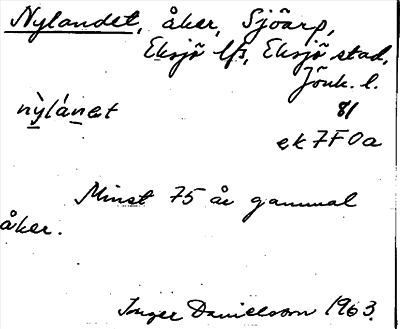 Nylandet, åker, Sjöarp,
Eksjö lfs, Eksjö stad,
Jönk. l.
nỳlánet 81
ek 7F0a
Minst 75 år gammal
åker.
Inger Danielsson 1963.